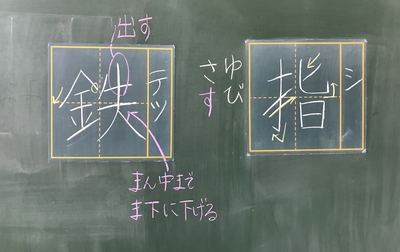 出す
鉄
テツ
まん中まで
ま下に下げる
指
シ
ゆび
さす